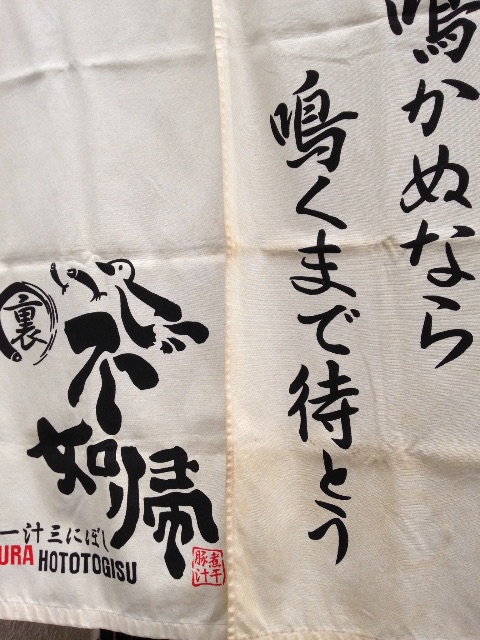 鳴かぬなら
鳴くまで待とう
裏
不如帰
一汁三にぼし
URA HOTOTOGISU
煮干
豚汁